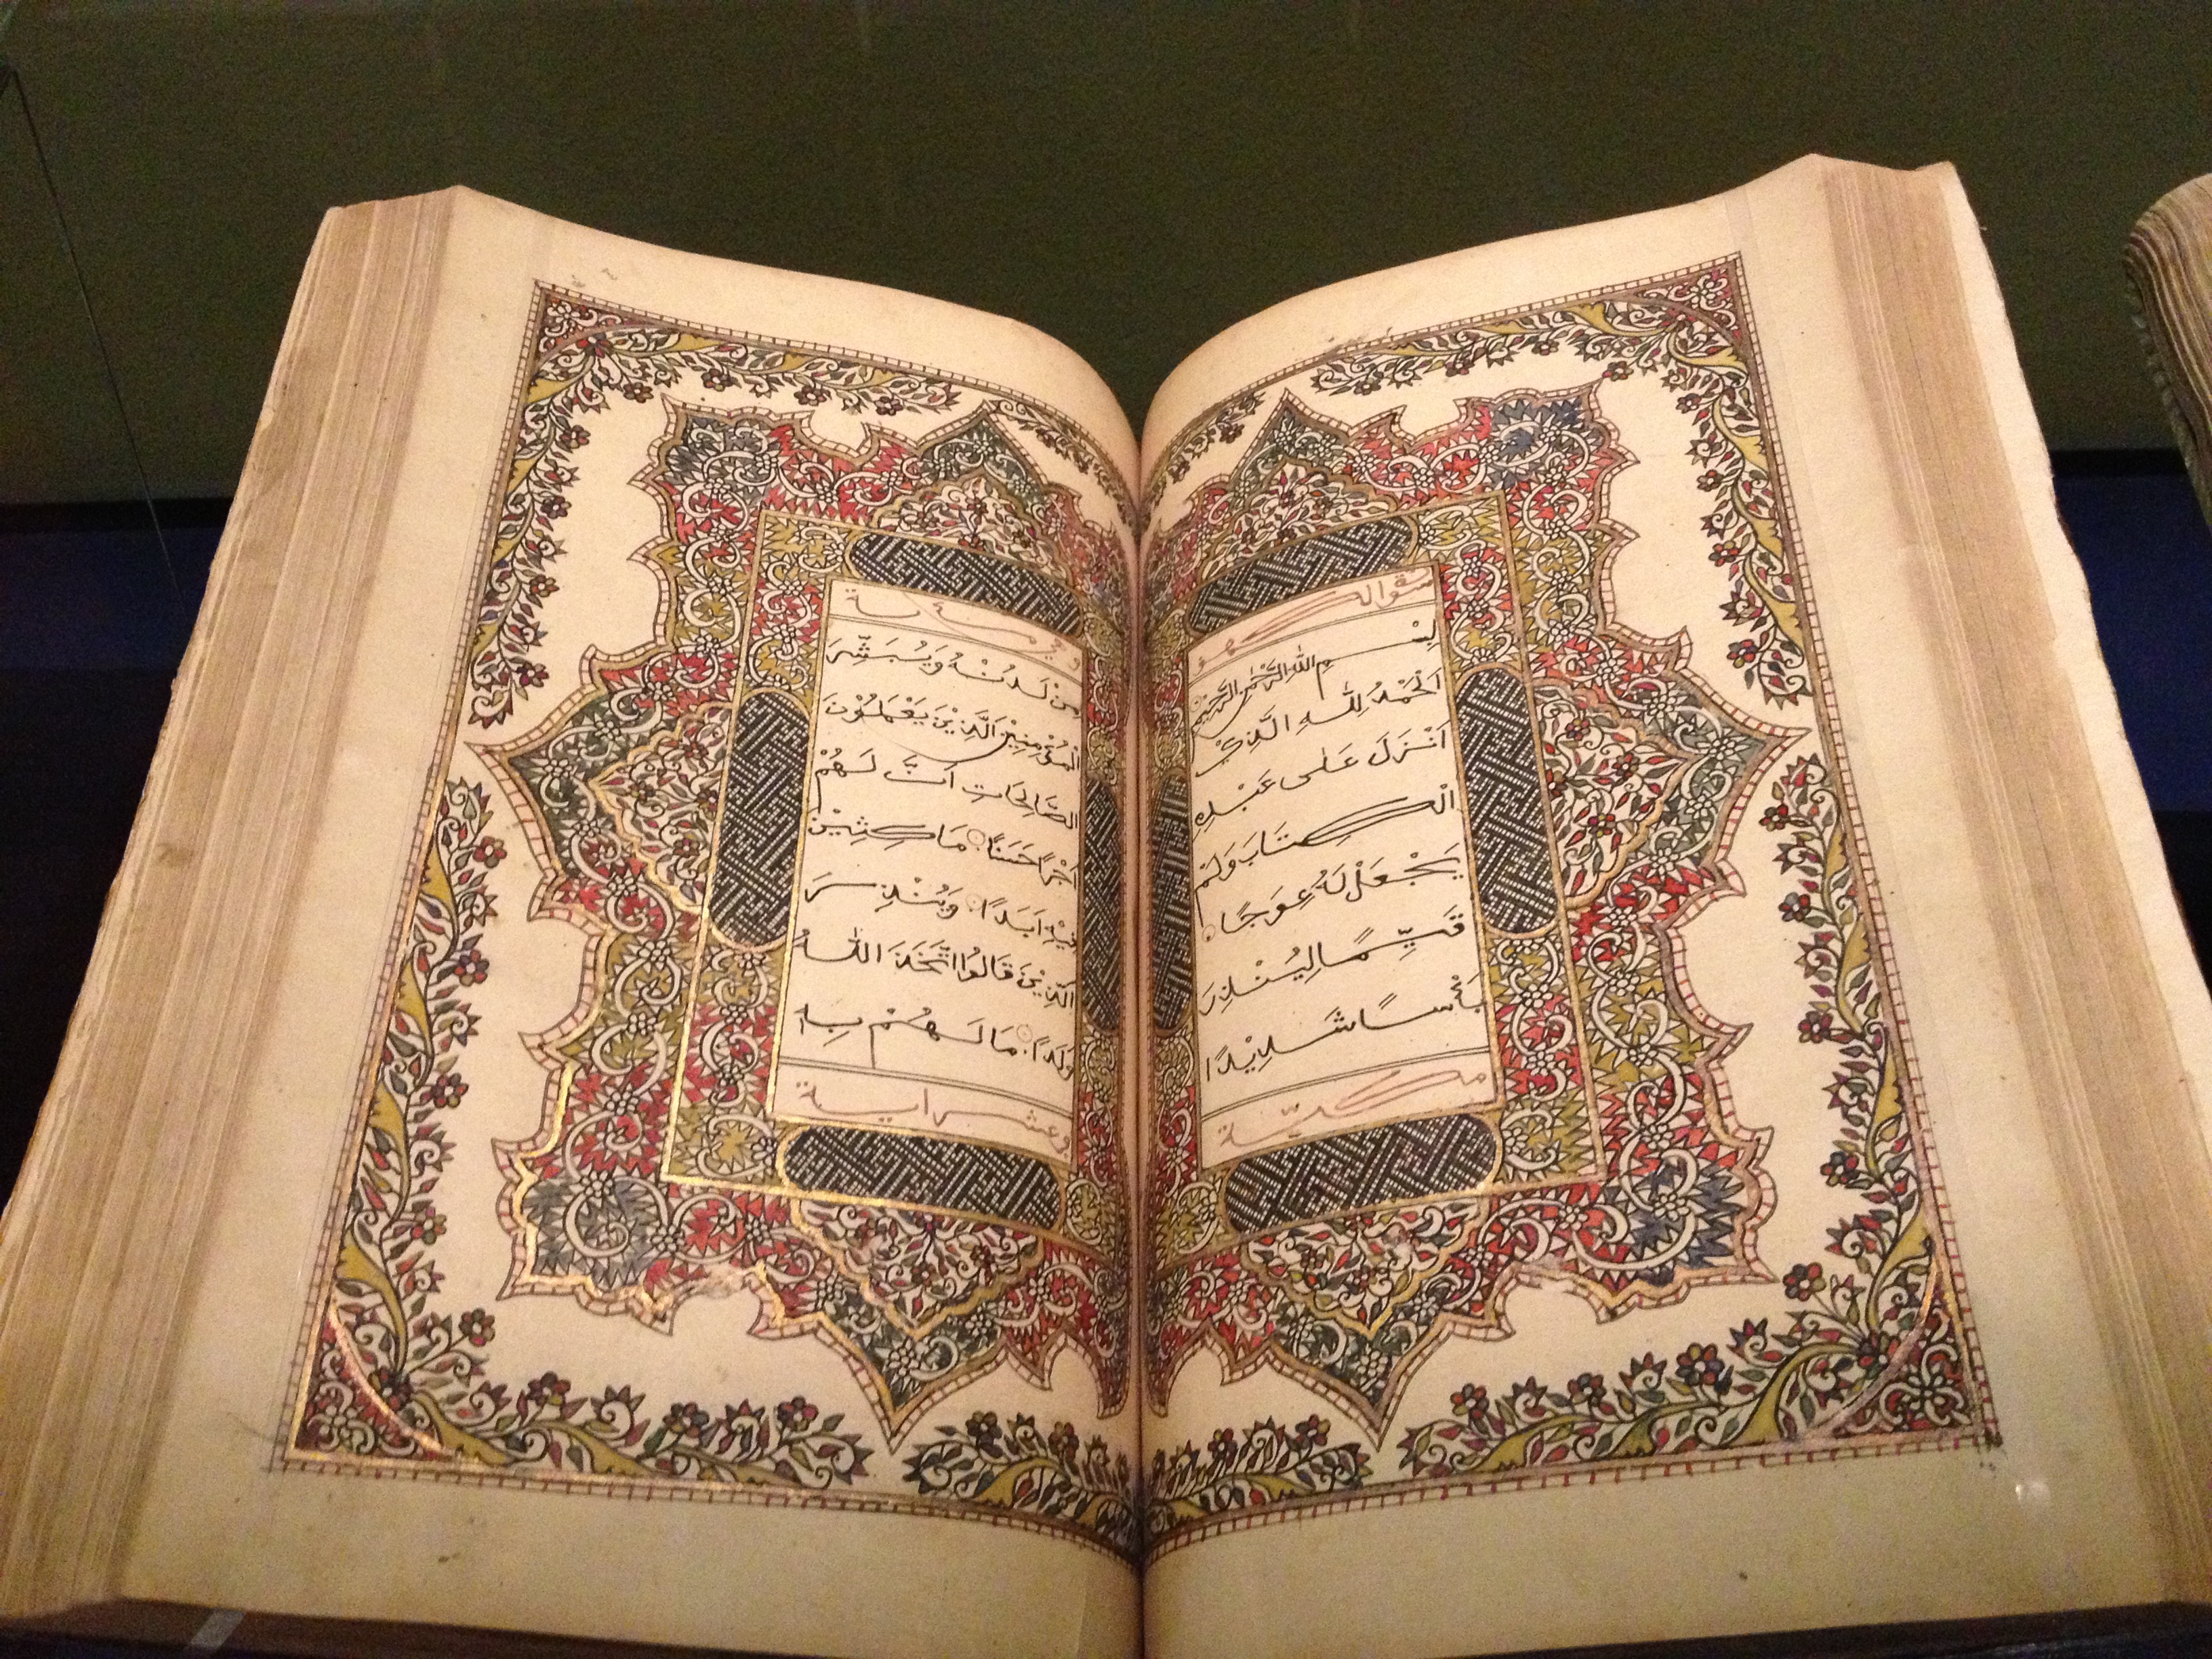 سورة الكهف
بِسْمِ اللهِ الرَّحْمٰنِ الرَّحِيْمِ
اَلْحَمْدُ لِلّٰهِ الَّذِيْ
اَنْزَلَ عَلٰى عَبْدِهِ
الْكِتَابَ وَلَمْ
يَجْعَلْ لَهُ عِوَجًا
قَيِّمًا لِيُنْذِرَ
بَأْسًا شَدِيْدًا
مكيّة
وهي مائة
مِنْ لَدُنْهُ وَيُبَشِّرَ
الْمُؤْمِنِيْنَ الَّذِيْنَ يَعْمَلُوْنَ
الصَّالِحَاتِ اَنَّ لَهُمْ
اَجْرًا حَسَنًا مَاكِثِيْنَ
فِيْهِ اَبَدًا وَيُنْذِرَ
الَّذِيْنَ قَالُوا اتَّخَذَ اللّٰهُ
وَلَدًا مَا لَهُمْ بِهِ
وعشر اية